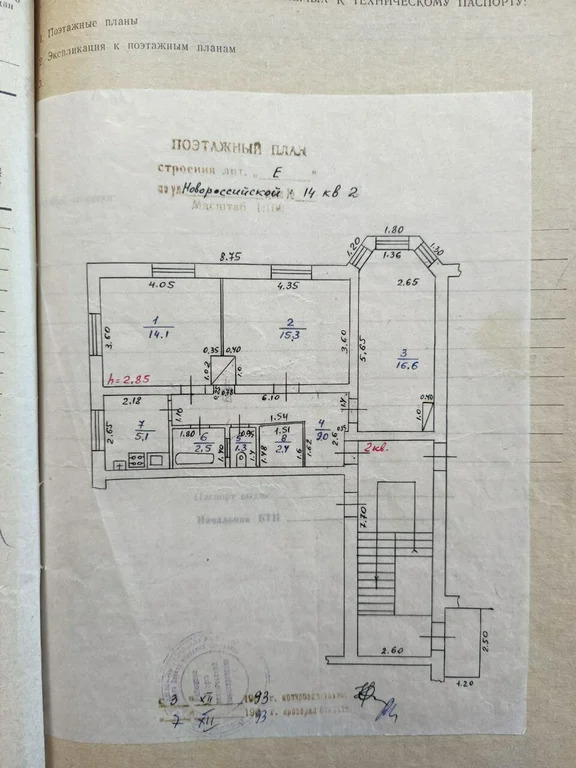 К ТЕХНИЧЕСКОМУ ПАСПОРТУ:
Поэтажные планы
2. Экспликация к поэтажным планам
3.
ПОЭТАЖНЫЙ ПЛАН
строения лит. „ Е "
по ул. Новороссийской № 14 кв 2
Масштаб
8.75
1.20
1.80
1.30
1.36
4.05
4.35
2.65
1
14.1
2
15,3
3.60
3.60
5,65
3
16.6
0.35
0.40
1.02
1.0
h=2.85
0.78
6.10
0.40
1.0
2.18
1.10
1.54
4
9.0
7
5,1
2,65
1.80
6
2,5
1.40
0.95
5
1.3
1.4
1.51
8
2,4
1.48
1.6
1.62
2.6
2кв.
Начальник БТИ
7.70
2.60
2.50
1.20
3 XII 1993 г.
7 XII 1993 г.